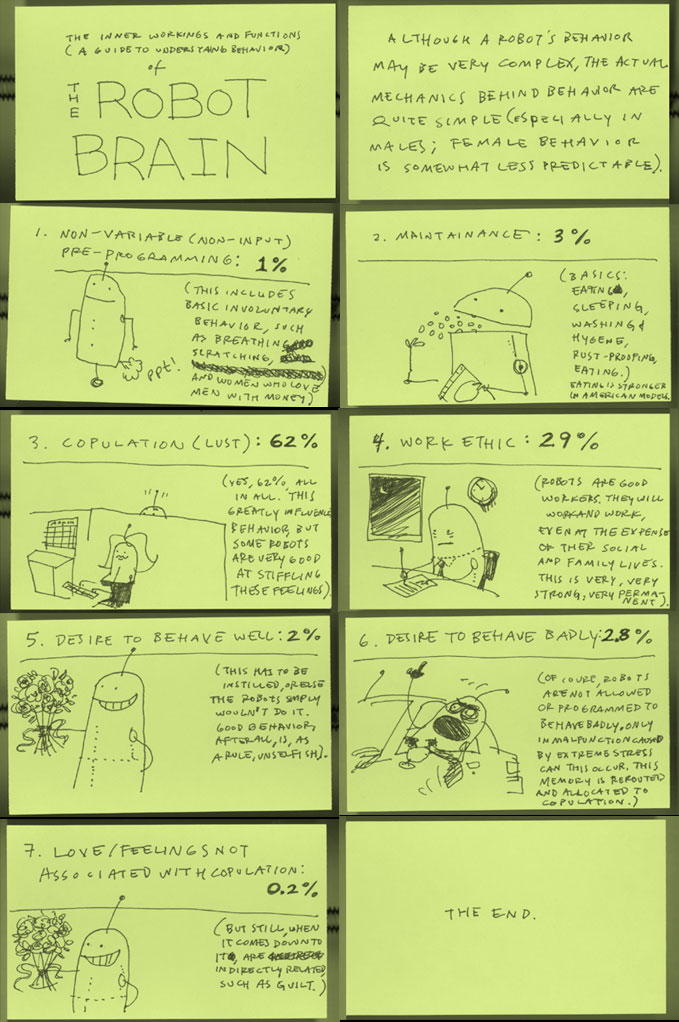 THE INNER WORKINGS AND FUNCTIONS
(A GUIDE TO UNDERSTAING BEHAVIOR)
of
THE ROBOT
BRAIN
ALTHOUGH A ROBOT'S BEHAVIOR
MAY BE VERY COMPLEX, THE ACTUAL
MECHANICS BEHIND BEHAVIOR ARE
QUITE SIMPLE (ESPECIALLY IN
MALES; FEMALE BEHAVIOR
IS SOMEWHAT LESS PREDICTABLE).
1. NON-VARIABLE (NON-INPUT)
PRE-PROGRAMMING: 1%
(THIS INCLUDES
BASIC INVOLUNTARY
BEHAVIOR, SUCH
AS BREATHING
SCRATCHING,
AND WOMEN WHO LOVE
MEN WITH MONEY)
ppt!
2. MAINTAINANCE: 3%
(BASICS:
EATING,
SLEEPING,
WASHING &
HYGENE,
RUST-PROOFING,
EATING.)
EATING IS STRONGER
IN AMERICAN MODELS.
3. COPULATION (LUST): 62%
(YES, 62%, ALL
IN ALL. THIS
GREATLY INFLUENCE
BEHAVIOR, BUT
SOME ROBOTS
ARE VERY GOOD
AT STIFFLING
THESE FEELINGS)
4. WORK ETHIC: 29%
(ROBOTS ARE GOOD
WORKERS. THEY WILL
WORK AND WORK,
EVEN AT THE EXPENSE
OF THER SOCIAL
AND FAMILY LIVES.
THIS IS VERY, VERY
STRONG; VERY PERMA-
NENT).
5. DESIRE TO BEHAVE WELL: 2%
(THIS HAS TO BE
INSTILLED, OR ELSE
THE ROBOTS SIMPLY
WOULDN'T DO IT.
GOOD BEHAVIOR,
AFTERALL, IS, AS
A RULE, UNSELFISH).
6. DESIRE TO BEHAVE BADLY: 2.8%
(OF COURE, ROBOTS
ARE NOT ALLOWED
OR PROGRAMMED TO
BEHAVE BADLY. ONLY
IN MALFUNCTION CAUSED
BY EXTREME STRESS
CAN THIS OCCUR. THIS
MEMORY IS REROUTED
AND ALLOCATED TO
COPULATION.)
7. LOVE/FEELINGS NOT
ASSOCIATED WITH COPULATION:
0.2%
(BUT STILL, WHEN
IT COMES DOWN TO
IT, ARE
INDIRECTLY RELATED
SUCH AS GUILT.)
THE END.